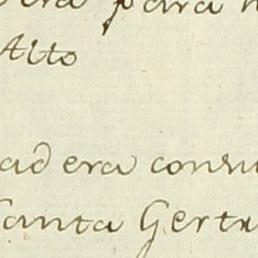 para
Alto
adera
anta Gertr